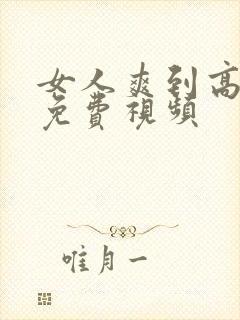 女人爽到高
免費視頻
唯月一